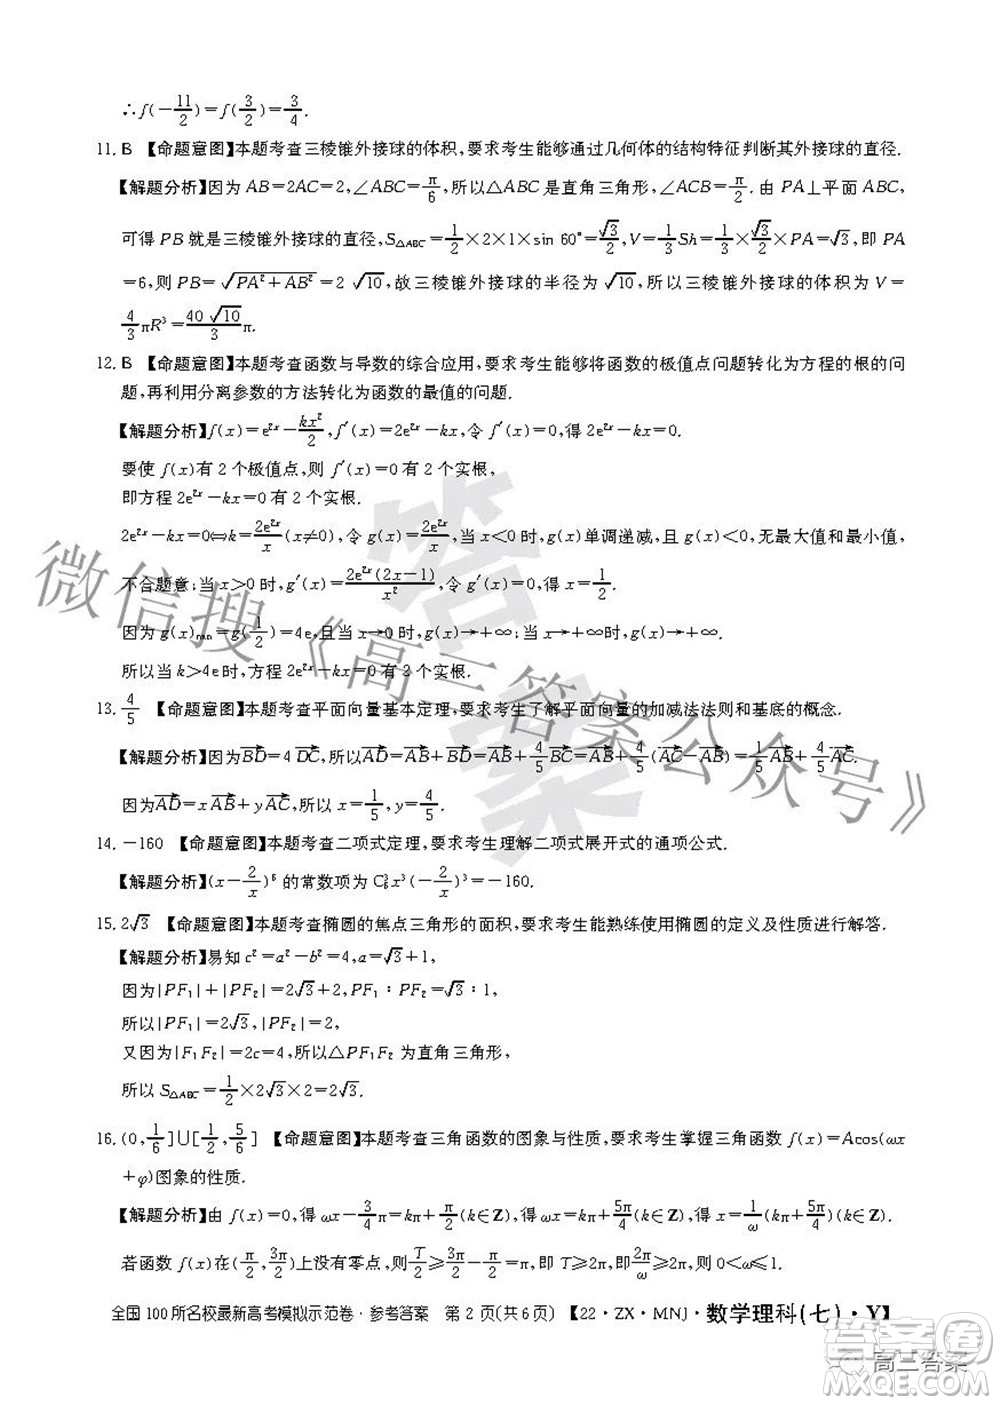 ∴f(-11/2)=f(3/2)=3/4.
11. B 【命题意图】本题考查三棱锥外接球的体积,要求考生能够通过几何体的结构特征判断其外接球的直径.
【解题分析】因为 AB=2AC=2,∠ABC=π/6,所以△ABC 是直角三角形,∠ACB=π/2. 由 PA⊥平面 ABC,
可得 PB 就是三棱锥外接球的直径,S△ABC=1/2×2×1×sin 60°=√3/2,V=1/3Sh=1/3×√3/2×PA=√3,即 PA
=6,则 PB=√(PA²+AB²)=2√10,故三棱锥外接球的半径为√10,所以三棱锥外接球的体积为 V=
4/3πR³=40√10/3π.
12. B 【命题意图】本题考查函数与导数的综合应用,要求考生能够将函数的极值点问题转化为方程的根的问
题,再利用分离参数的方法转化为函数的最值的问题.
【解题分析】f(x)=e²ˣ-kx²/2,f′(x)=2e²ˣ-kx,令 f′(x)=0,得 2e²ˣ-kx=0.
要使 f(x)有 2 个极值点,则 f′(x)=0 有 2 个实根,
即方程 2e²ˣ-kx=0 有 2 个实根.
2e²ˣ-kx=0⇔k=2e²ˣ/x(x≠0),令 g(x)=2e²ˣ/x,当 x<0 时,g(x)单调递减,无最大值和最小值,
不合题意;当 x>0 时,g′(x)=2e²ˣ(2x-1)/x²,令 g′(x)=0,得 x=1/2.
因为 g(x)min=g(1/2)=4e,且当 x→0 时,g(x)→+∞;当 x→+∞时,g(x)→+∞.
所以当 k>4e时,方程 2e²ˣ-kx=0 有 2 个实根.
13. 4/5 【命题意图】本题考查平面向量基本定理,要求考生了解平面向量的加减法法则和基底的概念.
【解题分析】因为BD=4 DC,所以AD=AB+BD=AB+4/5BC=AB+4/5(AC-AB)=1/5AB+4/5AC.
因为AD=xAB+yAC,所以 x=1/5,y=4/5.
14. -160 【命题意图】本题考查二项式定理,要求考生理解二项式展开式的通项公式.
【解题分析】(x-2/x)⁶ 的常数项为 C₆³x³(-2/x)³=-160.
15. 2√3 【命题意图】本题考查椭圆的焦点三角形的面积,要求考生能熟练使用椭圆的定义及性质进行解答.
【解题分析】易知 c²=a²-b²=4,a=√3+1,
因为|PF₁|+|PF₂|=2√3+2,PF₁∶PF₂=√3∶1,
所以|PF₁|=2√3,|PF₂|=2,
又因为|F₁F₂|=2c=4,所以△PF₁F₂为直角三角形,
所以 S△ABC=1/2×2√3×2=2√3.
16. (0,1/6]∪[1/2,5/6] 【命题意图】本题考查三角函数的图象与性质,要求考生掌握三角函数 f(x)=Acos(ωx
+φ)图象的性质.
【解题分析】由 f(x)=0,得 ωx-3/4π=kπ+π/2(k∈Z),得 ωx=kπ+5π/4(k∈Z),得 x=1/ω(kπ+5π/4)(k∈Z).
若函数 f(x)在(π/2,3π/2)上没有零点,则T/2≥3π/2-π/2=π,即 T≥2π,所以2π/ω≥2π,则 0<ω≤1.
全国 100 所名校最新高考模拟示范卷·参考答案 第 2 页(共 6 页) 【22·ZX·MNJ·数学理科(七)·Y】
微信搜《高三答案公众号》
答案
答案圈
高三答案
MXQE.COM